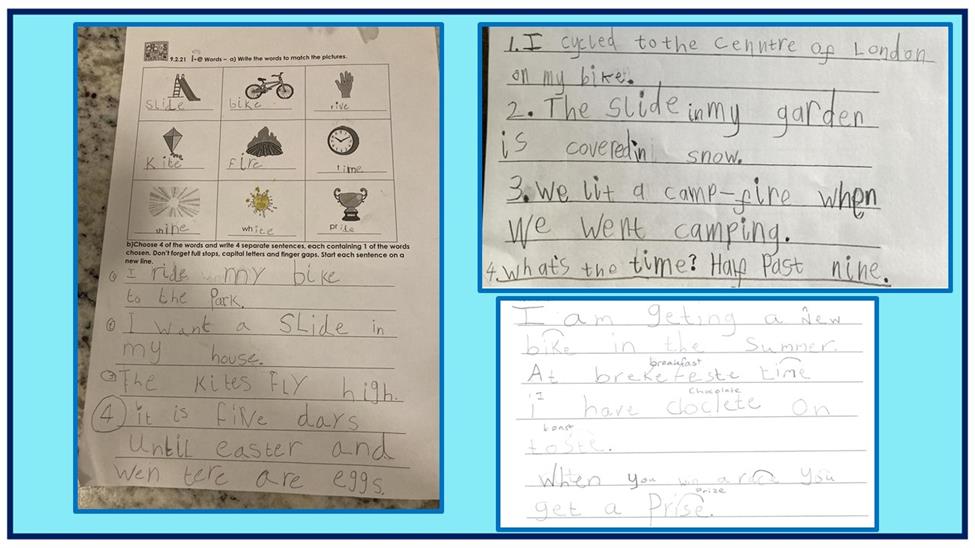 9.2.21 i-e Words – a) Write the words to match the pictures.
slide bike five
kite fire time
shine white prize
b)Choose 4 of the words and write 4 separate sentences, each containing 1 of the words
chosen. Don't forget full stops, capital letters and finger gaps. Start each sentence on a
new line.
I ride my bike
to the Park.
I want a SLide in
my house.
The kites FLY high.
4 it is five days
Until easter and
wen tere are eggs.
1. I cycled to the cenntre of London
on my bike.
2. The slide in my garden
is covered in snow.
3. We lit a camp-fire when
we went camping.
4. What's the time? Half Past nine.
I am geting a New
bike in the summer.
breakfast
At brekefeste time
I chocolate
i have cloclete on
toast
toste.
When you win a race you
prize
get a Prise.